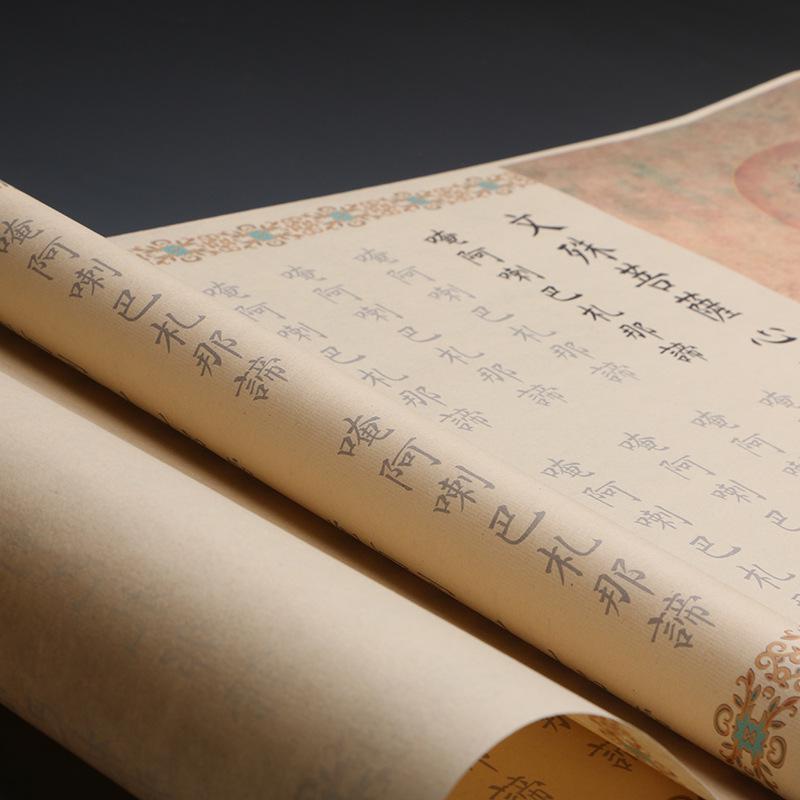 文殊菩薩心
唵阿喇巴札那諦
唵阿喇巴札那諦
唵阿喇巴札那諦
唵阿喇巴札那諦
唵阿喇巴札那諦
唵
唵阿
唵阿喇巴
唵阿喇巴札
唵阿喇巴札那諦